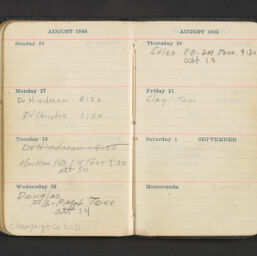 AUGUST 1945
Sunday 26
Monday 27
Dr Hindman - 8:30
Dr Christie 1:50
Tuesday 28
Dr Hindman - 8:30
FB FM Tour 9:30
att 50
Wednesday 29
Douglas
FB-FM Tour
att 14
Champaign Co SCD
AUGUST 1945
Thursday 30
Coles FB-FM Tour 9:30
att 18
Friday 31
Clay - Tour
Saturday 1 SEPTEMBER
Memoranda